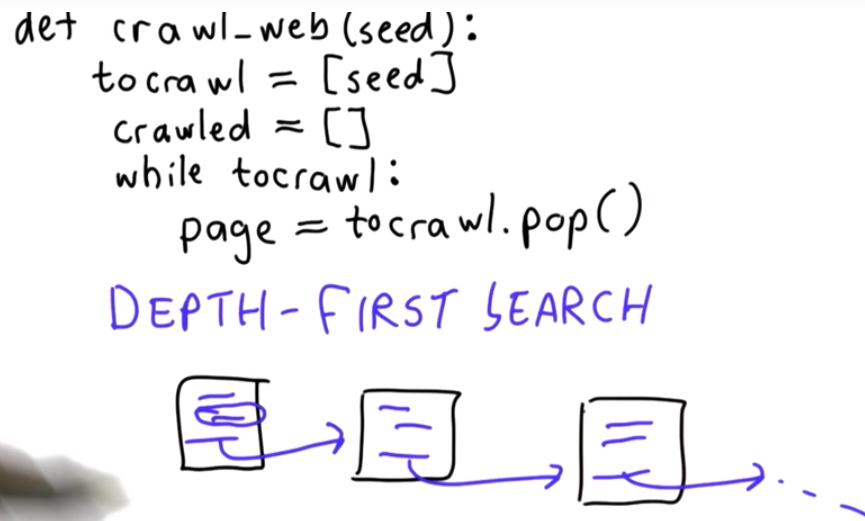 def crawl_web(seed):
tocrawl = [seed]
crawled = []
while tocrawl:
page = tocrawl.pop()
DEPTH-FIRST SEARCH